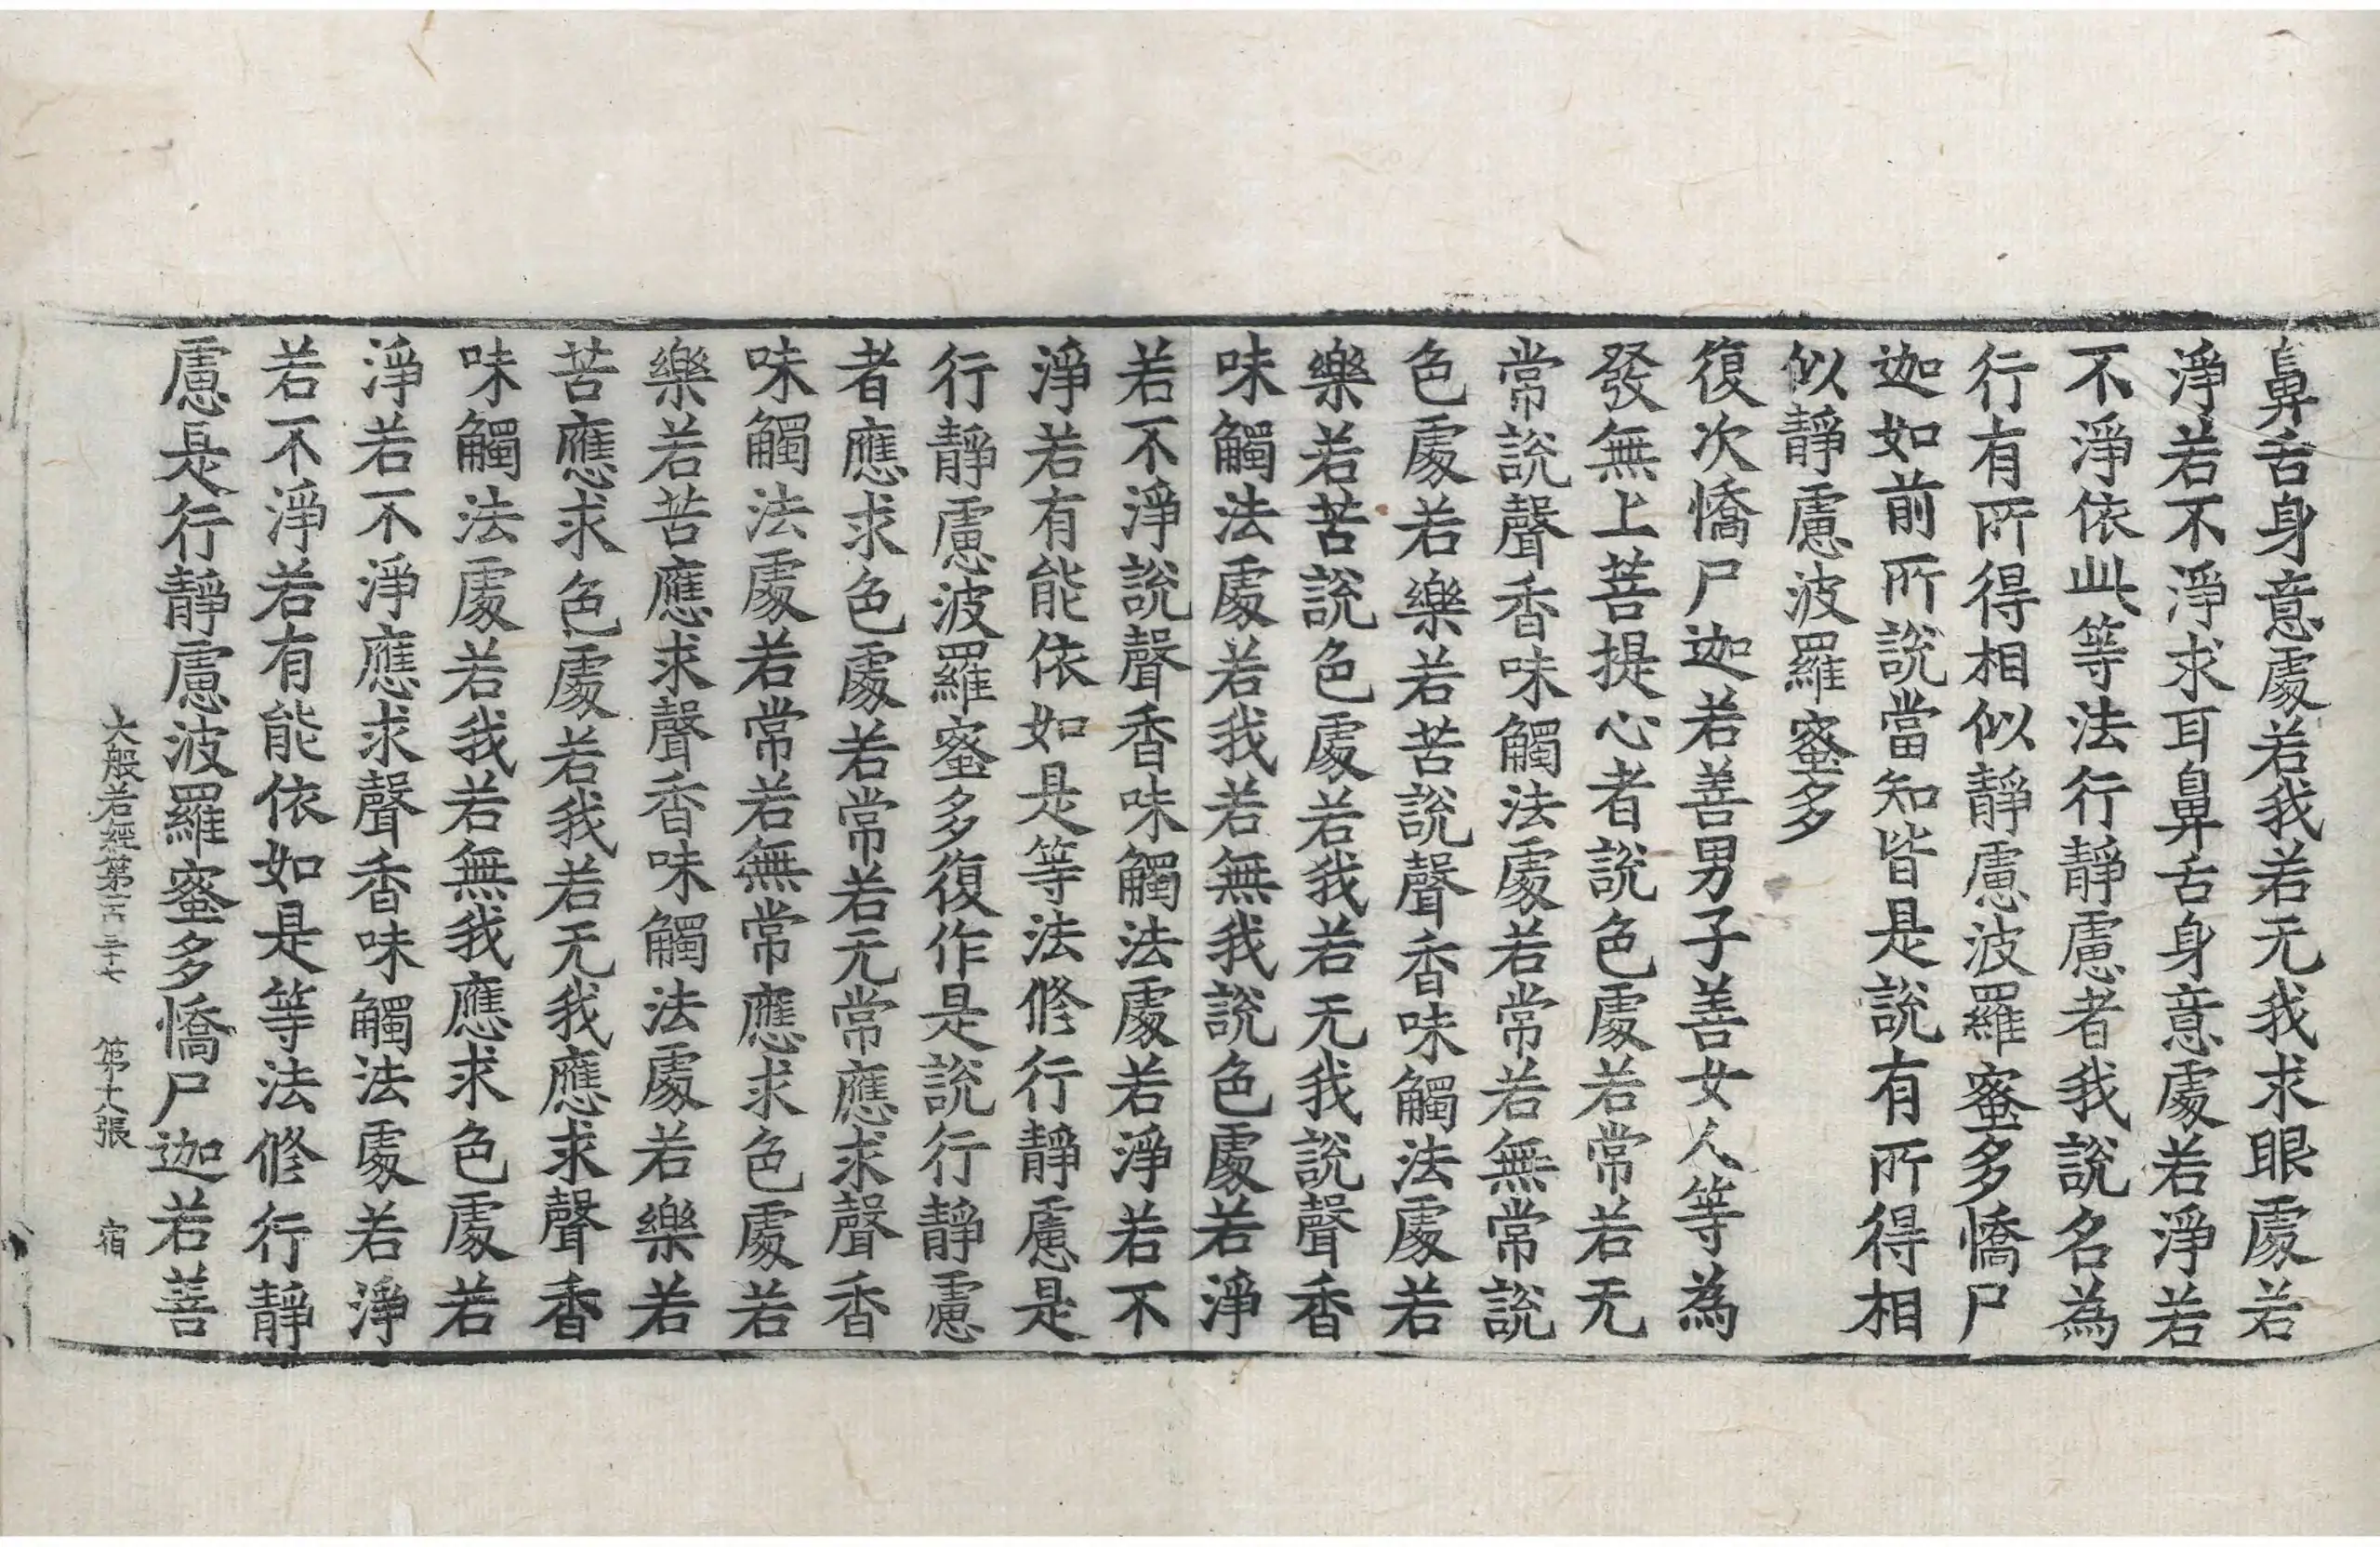 鼻舌身意處若我若无我求眼處若
淨若不淨求耳鼻舌身意處若淨若
不淨依此等法行靜慮者我說名為
行有所得相似靜慮波羅蜜多憍尸
迦如前所說當知皆是說有所得相
似靜慮波羅蜜多
復次憍尸迦若善男子善女人等為
發無上菩提心者說色處若常若无
常說聲香味觸法處若常若無常說
色處若樂若苦說聲香味觸法處若
樂若苦說色處若我若无我說聲香
味觸法處若我若無我說色處若淨
若不淨說聲香味觸法處若淨若不
淨若有能依如是等法修行靜慮是
行靜慮波羅蜜多復作是說行靜慮
者應求色處若常若无常應求聲香
味觸法處若常若無常應求色處若
樂若苦應求聲香味觸法處若樂若
苦應求色處若我若无我應求聲香
味觸法處若我若無我應求色處若
淨若不淨應求聲香味觸法處若淨
若不淨若有能依如是等法修行靜
慮是行靜慮波羅蜜多憍尸迦若善
大般若經第一百三十七 第張 宿